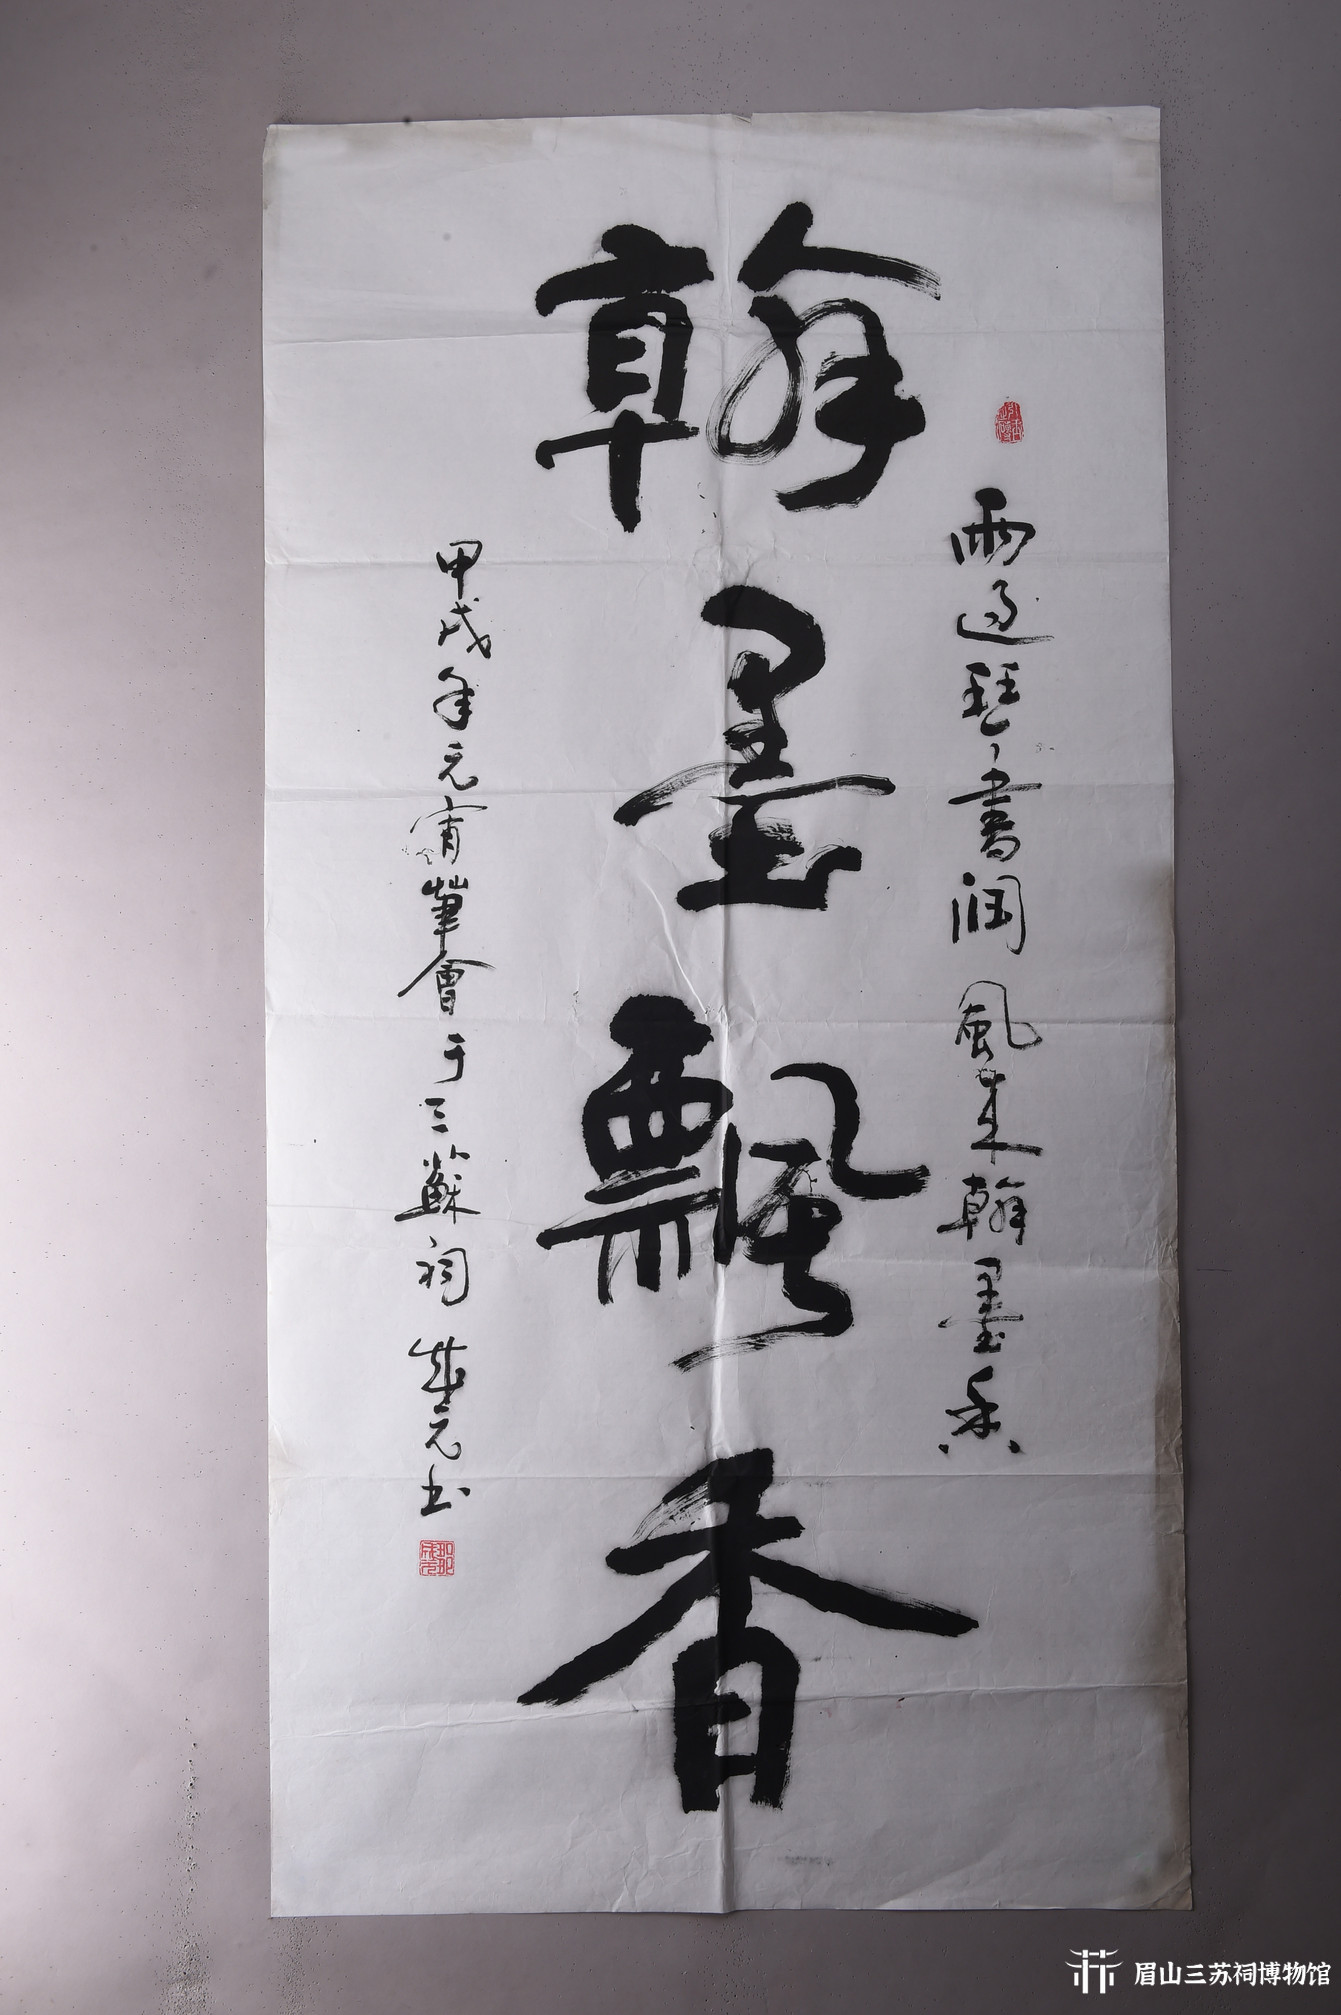 雨過琴書润風来翰墨香
翰墨飄香
甲戌年元宵筆會于三蘇祠 成元书
眉山三苏祠博物馆